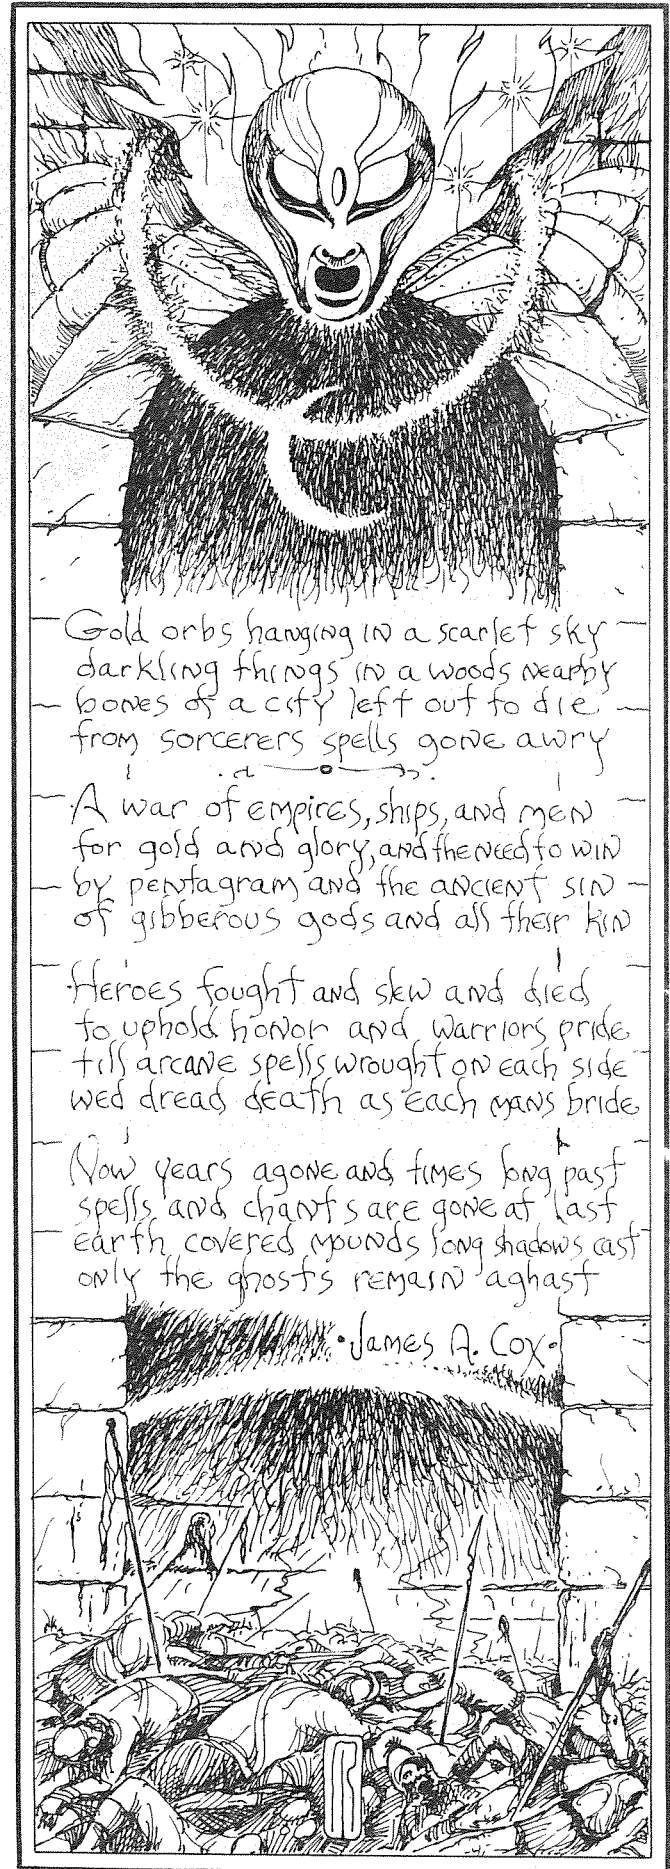 Gold orbs hanging in a scarlet sky
darkling things in a woods nearby
bones of a city left out to die
from sorcerers spells gone awry
A war of empires, ships, and men
for gold and glory, and the need to win
by pentagram and the ancient sin
of gibberous gods and all their kin
Heroes fought and slew and died
to uphold honor and warriors pride
till arcane spells wrought on each side
wed dread death as each mans bride
Now years agone and times long past
spells and chants are gone at last
earth covered mounds long shadows cast
only the ghosts remain aghast
·James A. Cox·